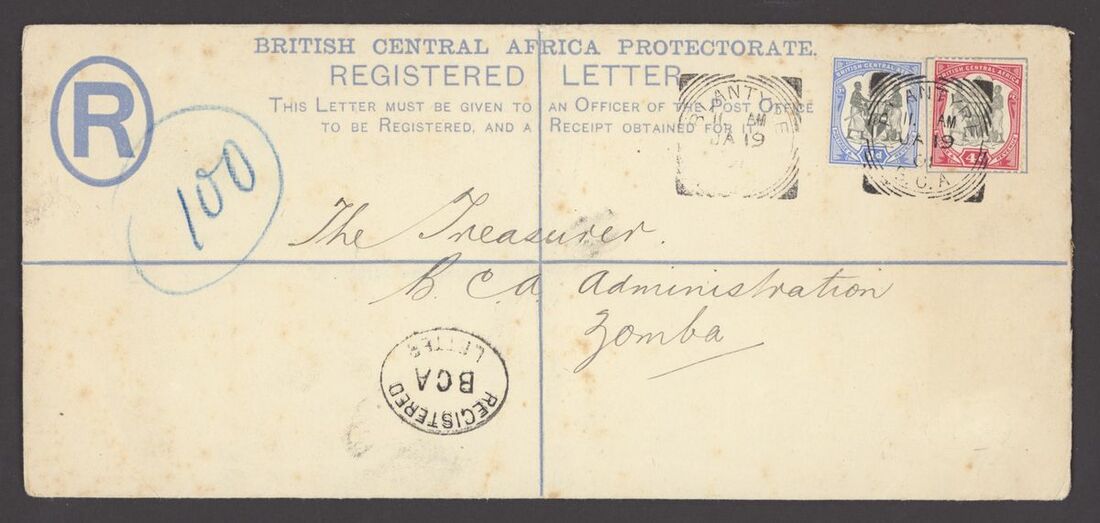 BRITISH CENTRAL AFRICA PROTECTORATE.
REGISTERED LETTER
THIS LETTER MUST BE GIVEN TO AN OFFICER OF THE POST OFFICE
TO BE REGISTERED, AND A RECEIPT OBTAINED FOR IT.
R
100
BLANTYRE
11 AM
JA 19
BRITISH CENTRAL AFRICA
BRITISH CENTRAL AFRICA
4d
BLANTYRE
11 AM
JA 19
01
B.C.A.
The Treasurer.
B. C. A. Administration
Zomba
REGISTERED
BCA
LETTER